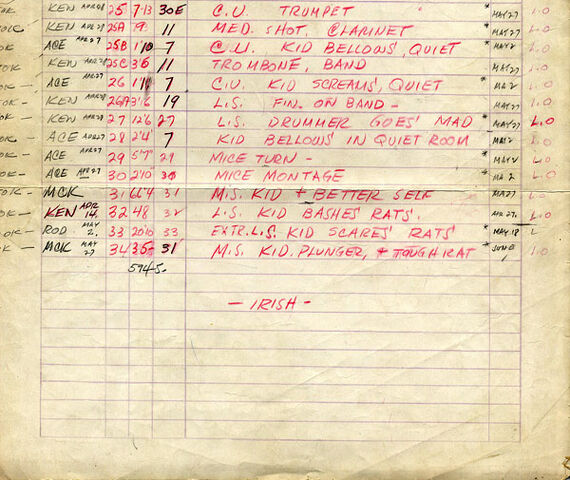 OK KEN APR 28 25 7-13 30E C.U. TRUMPET * MAY 27 L.O
OK KEN APR 28 25A 19 11 MED. SHOT. CLARINET * MAY 27 L.O
OK ACE APR 27 25B 7 C.U. KID BELLOWS', QUIET * MAY 2 L.O
OK KEN APR 28 25C 3'6 11 TROMBONE, BAND MAY 27 L.O
OK - ACE APR 27 26 7 C.U. KID SCREAMS', QUIET * MA 2 L.O
OK - KEN APR 28 26A 3'6 19 L.S. FIN. ON BAND - MAY 27 L.O
OK - KEN APR 28 27 12'6 27 L.S. DRUMMER GOES' MAD * MAY 27 L.O
OK - ACE APR 27 28 2'4 7 KID BELLOWS' IN QUIET ROOM MAY 2 L.O
OK - ACE APR 27 29 5'7 29 MICE TURN - * MAY L.O
OK - ACE APR 27 30 2'10 30 MICE MONTAGE * MA 2 L.O
OK - MCK 31 66'4 31 M.S. KID + BETTER SELF MA 27 L.O
OK - KEN APR 14. 32 48 32 L.S. KID BASHES RATS'. APR 27, L.O
OK - ROD MAY 2. 33 20'10 33 EXTR. L.S. KID SCARES' RATS' * MAY 18 L
K - MCK MAY 27 34 35 31 M.S. KID, PLUNGER, + TOUGH RAT * JUNE 1 L.O
594 5.
- IRISH -